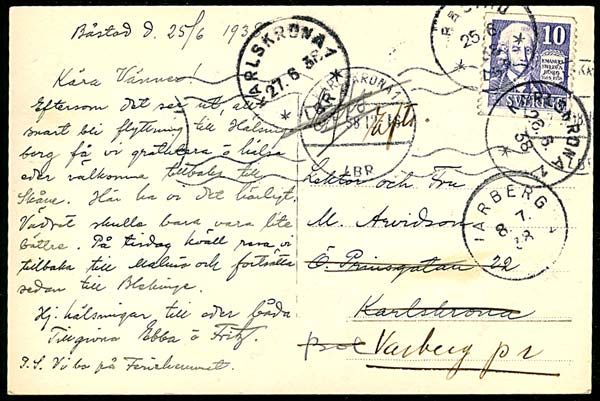 Båstad d. 25/6 1938
Kära Vänner!
Eftersom det ser ut, att
snart bli flyttning till Hälsing
berg få vi gratulera o hälsa
eder välkomna tillbaka till
Skåne. Här ha vi det härligt.
Vädret skulle bara vara lite
bättre. På tisdag kväll resa vi
tillbaka till Malmö och fortsätta
sedan till Blekinge.
Hj. hälsningar till eder båda
Tillgivna Ebba o Fritz.
P.S. Vi bo på
Lektor och Fru
M. Arvidson
Ö. Prinsgatan 22
Karlskrona
Varberg pr
KARLSKRONA 1
27.6.38
LBR
KARLSKRONA 1
LBR
BÅSTAD
25.6
10
EMANUEL
SWEDEN
SVERIGE
KARLSKRONA 1
26.6.38
LBR
VARBERG
8.7.38